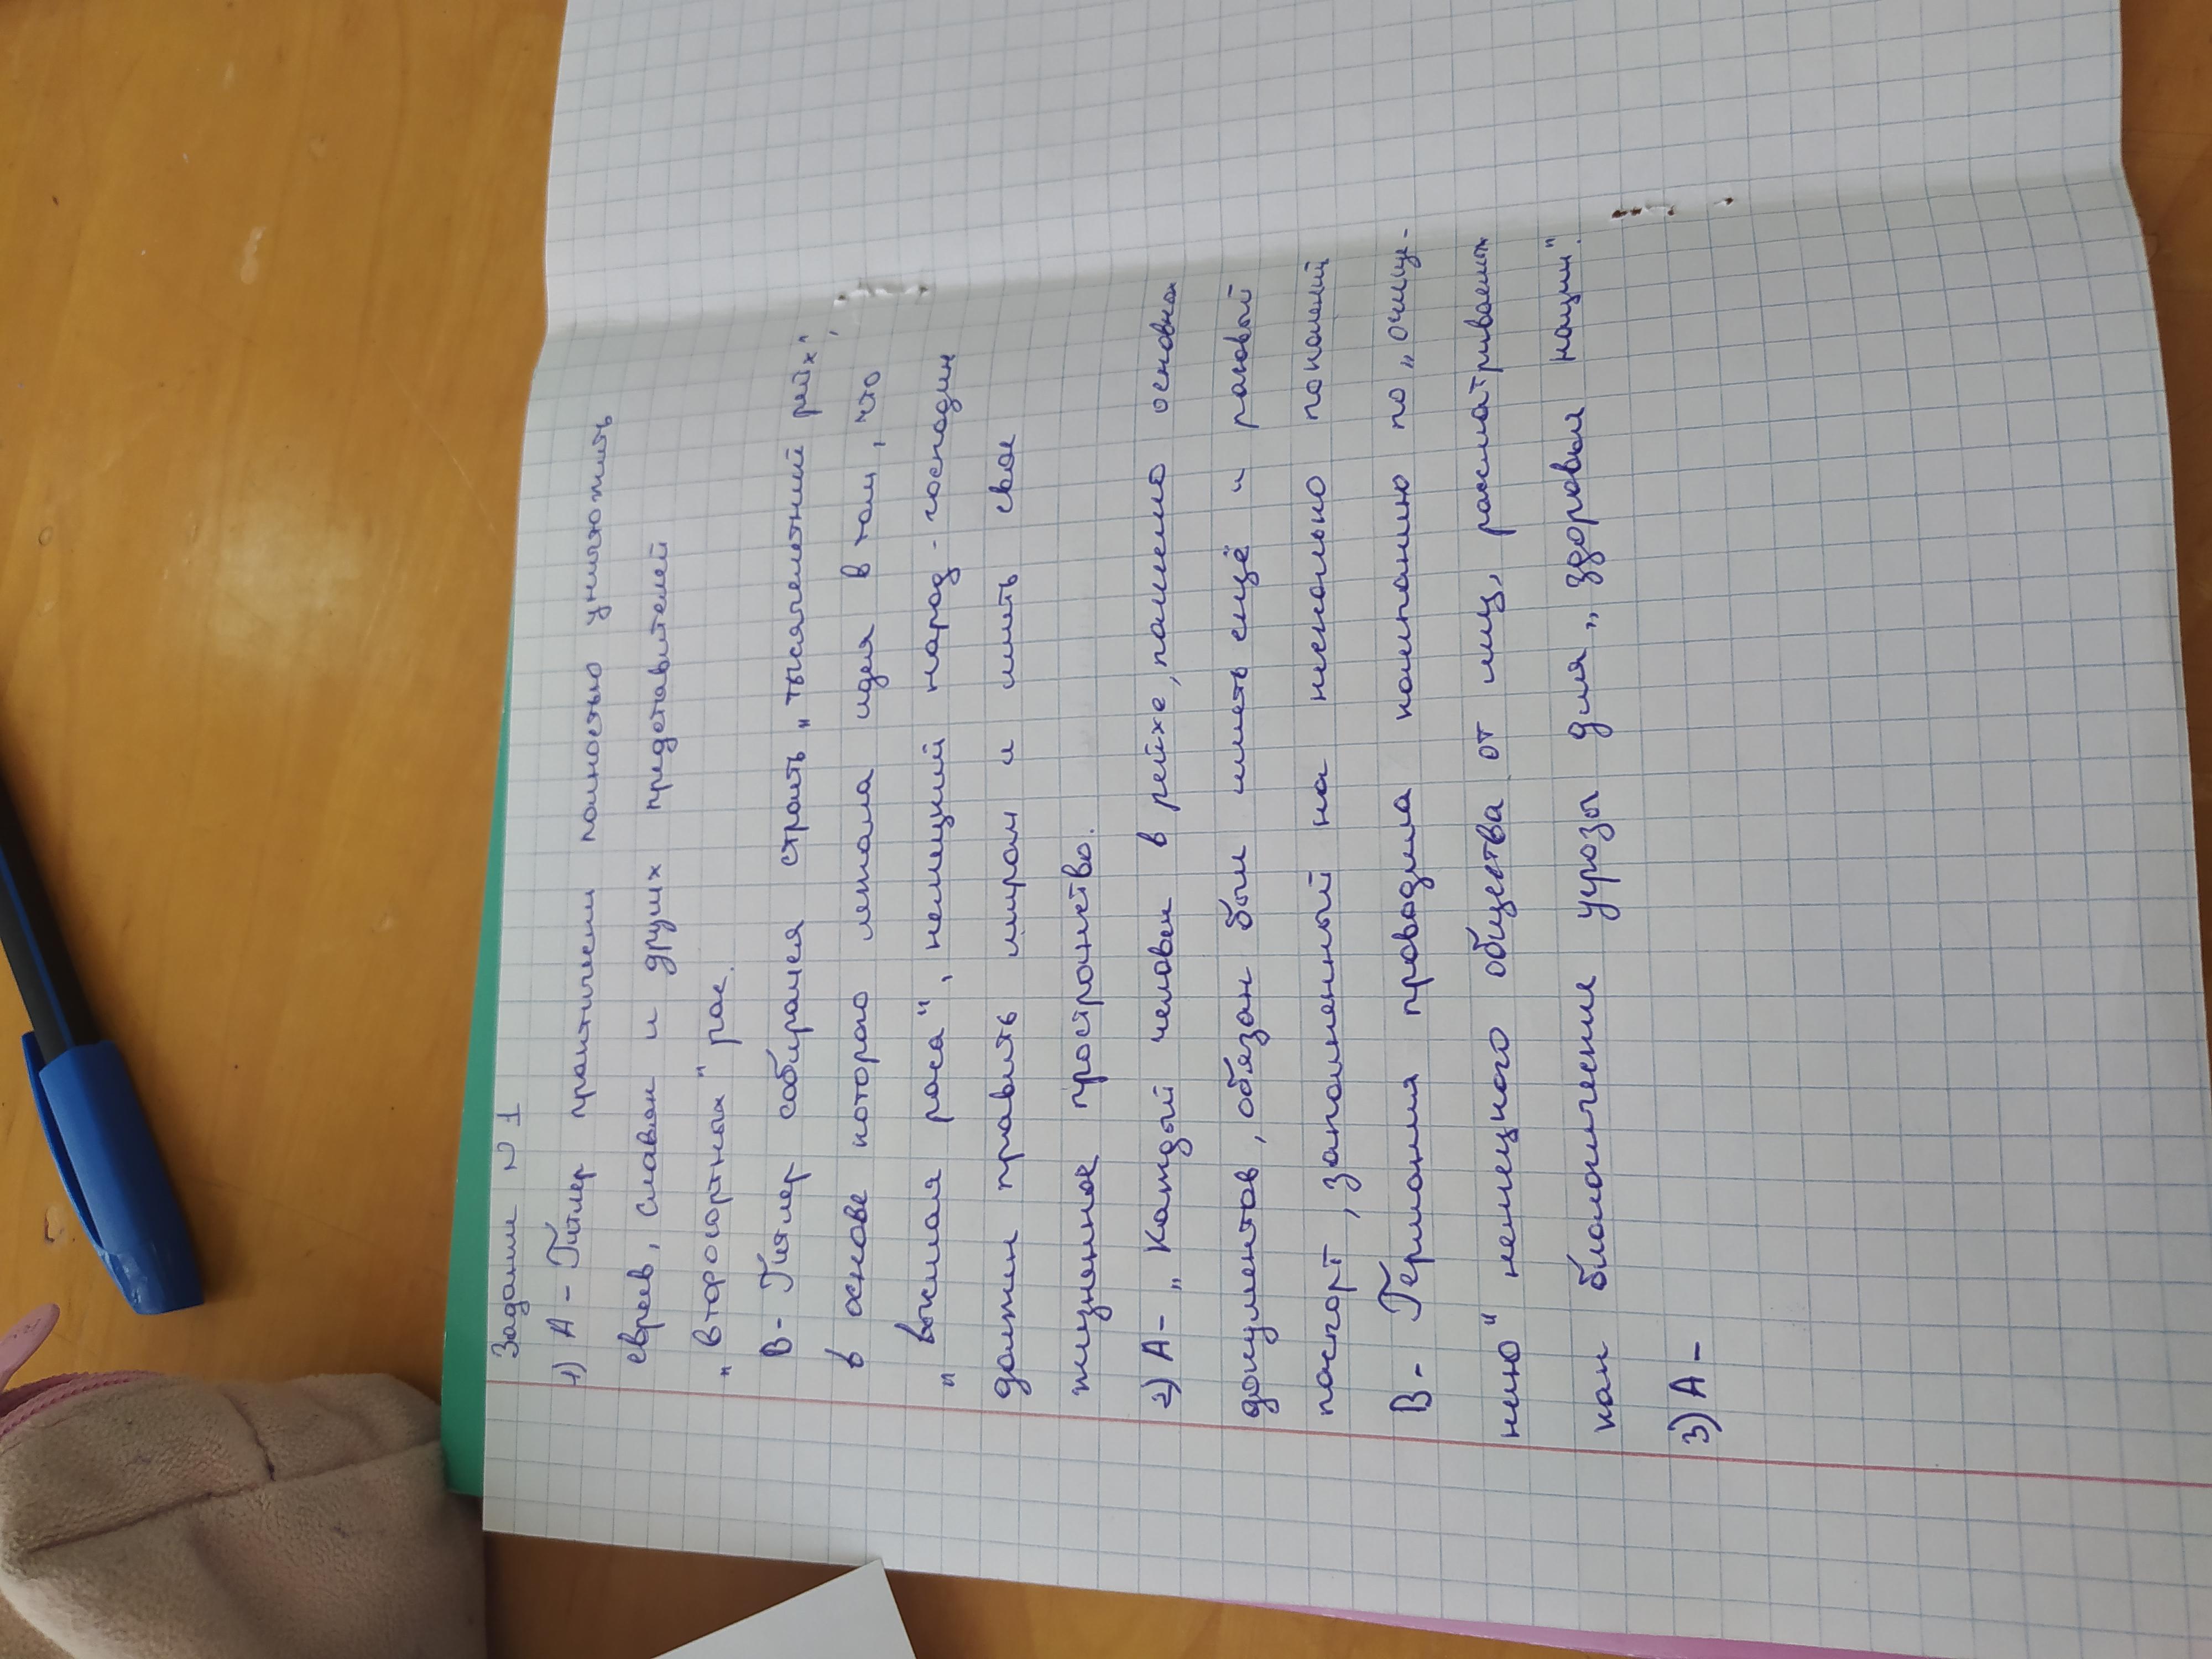 Задание №1
1) А - Гитлер практически полностью уничтожить
евреев, славян и других представителей
„второсортных" рас.
В - Гитлер собирался строить „тысячелетний рейх",
в основе которого лежала идея в том, что
„высшая раса", немецкий народ - господин
должен править миром и иметь свое
жизненное пространство.
2) А - „Каждый человек в рейхе, помимо основных
документов, обязан был иметь ещё и расовый
паспорт, заполненный на несколько поколений
В - Германия проводила кампанию по „очище-
нию" немецкого общества от лиц, рассматриваемых
как биологические угрозы для „здоровья нации".
3) А -